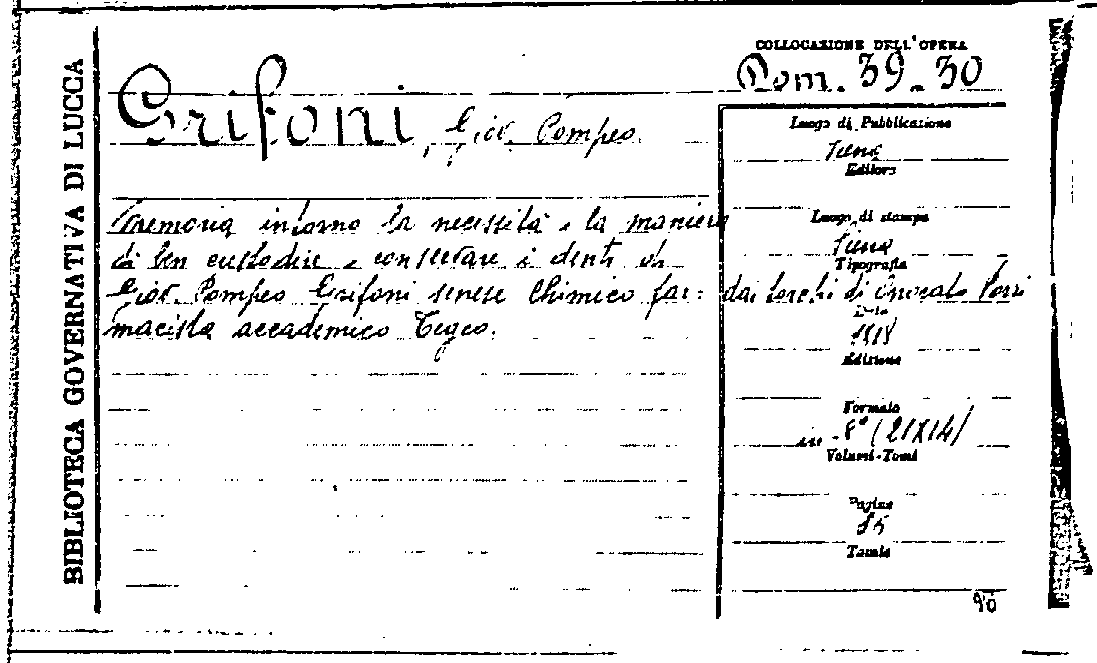 BIBLIOTECA GOVERNATIVA DI LUCCA
COLLOCAZIONE DELL'OPERA
Pom. 39-30
Grifoni, Giov. Pompeo.
Memoria intorno la necessità e la maniera
di ben custodire e conservare i denti di
Giov. Pompeo Grifoni senese Chimico far=
macista accademico Tegeo.
Luogo di Pubblicazione
Siena
Editore
Luogo di stampa
Siena
Tipografia
dai torchi di Onorato Porri
Data
Edizione
Formato
in-8° (21X14)
Volumi-Tomi
Pagine
Tavole